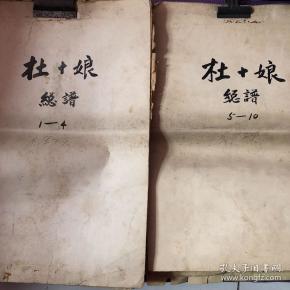 杜十娘
總譜
1—4
杜十娘
總譜
5—10
孔夫子旧书网